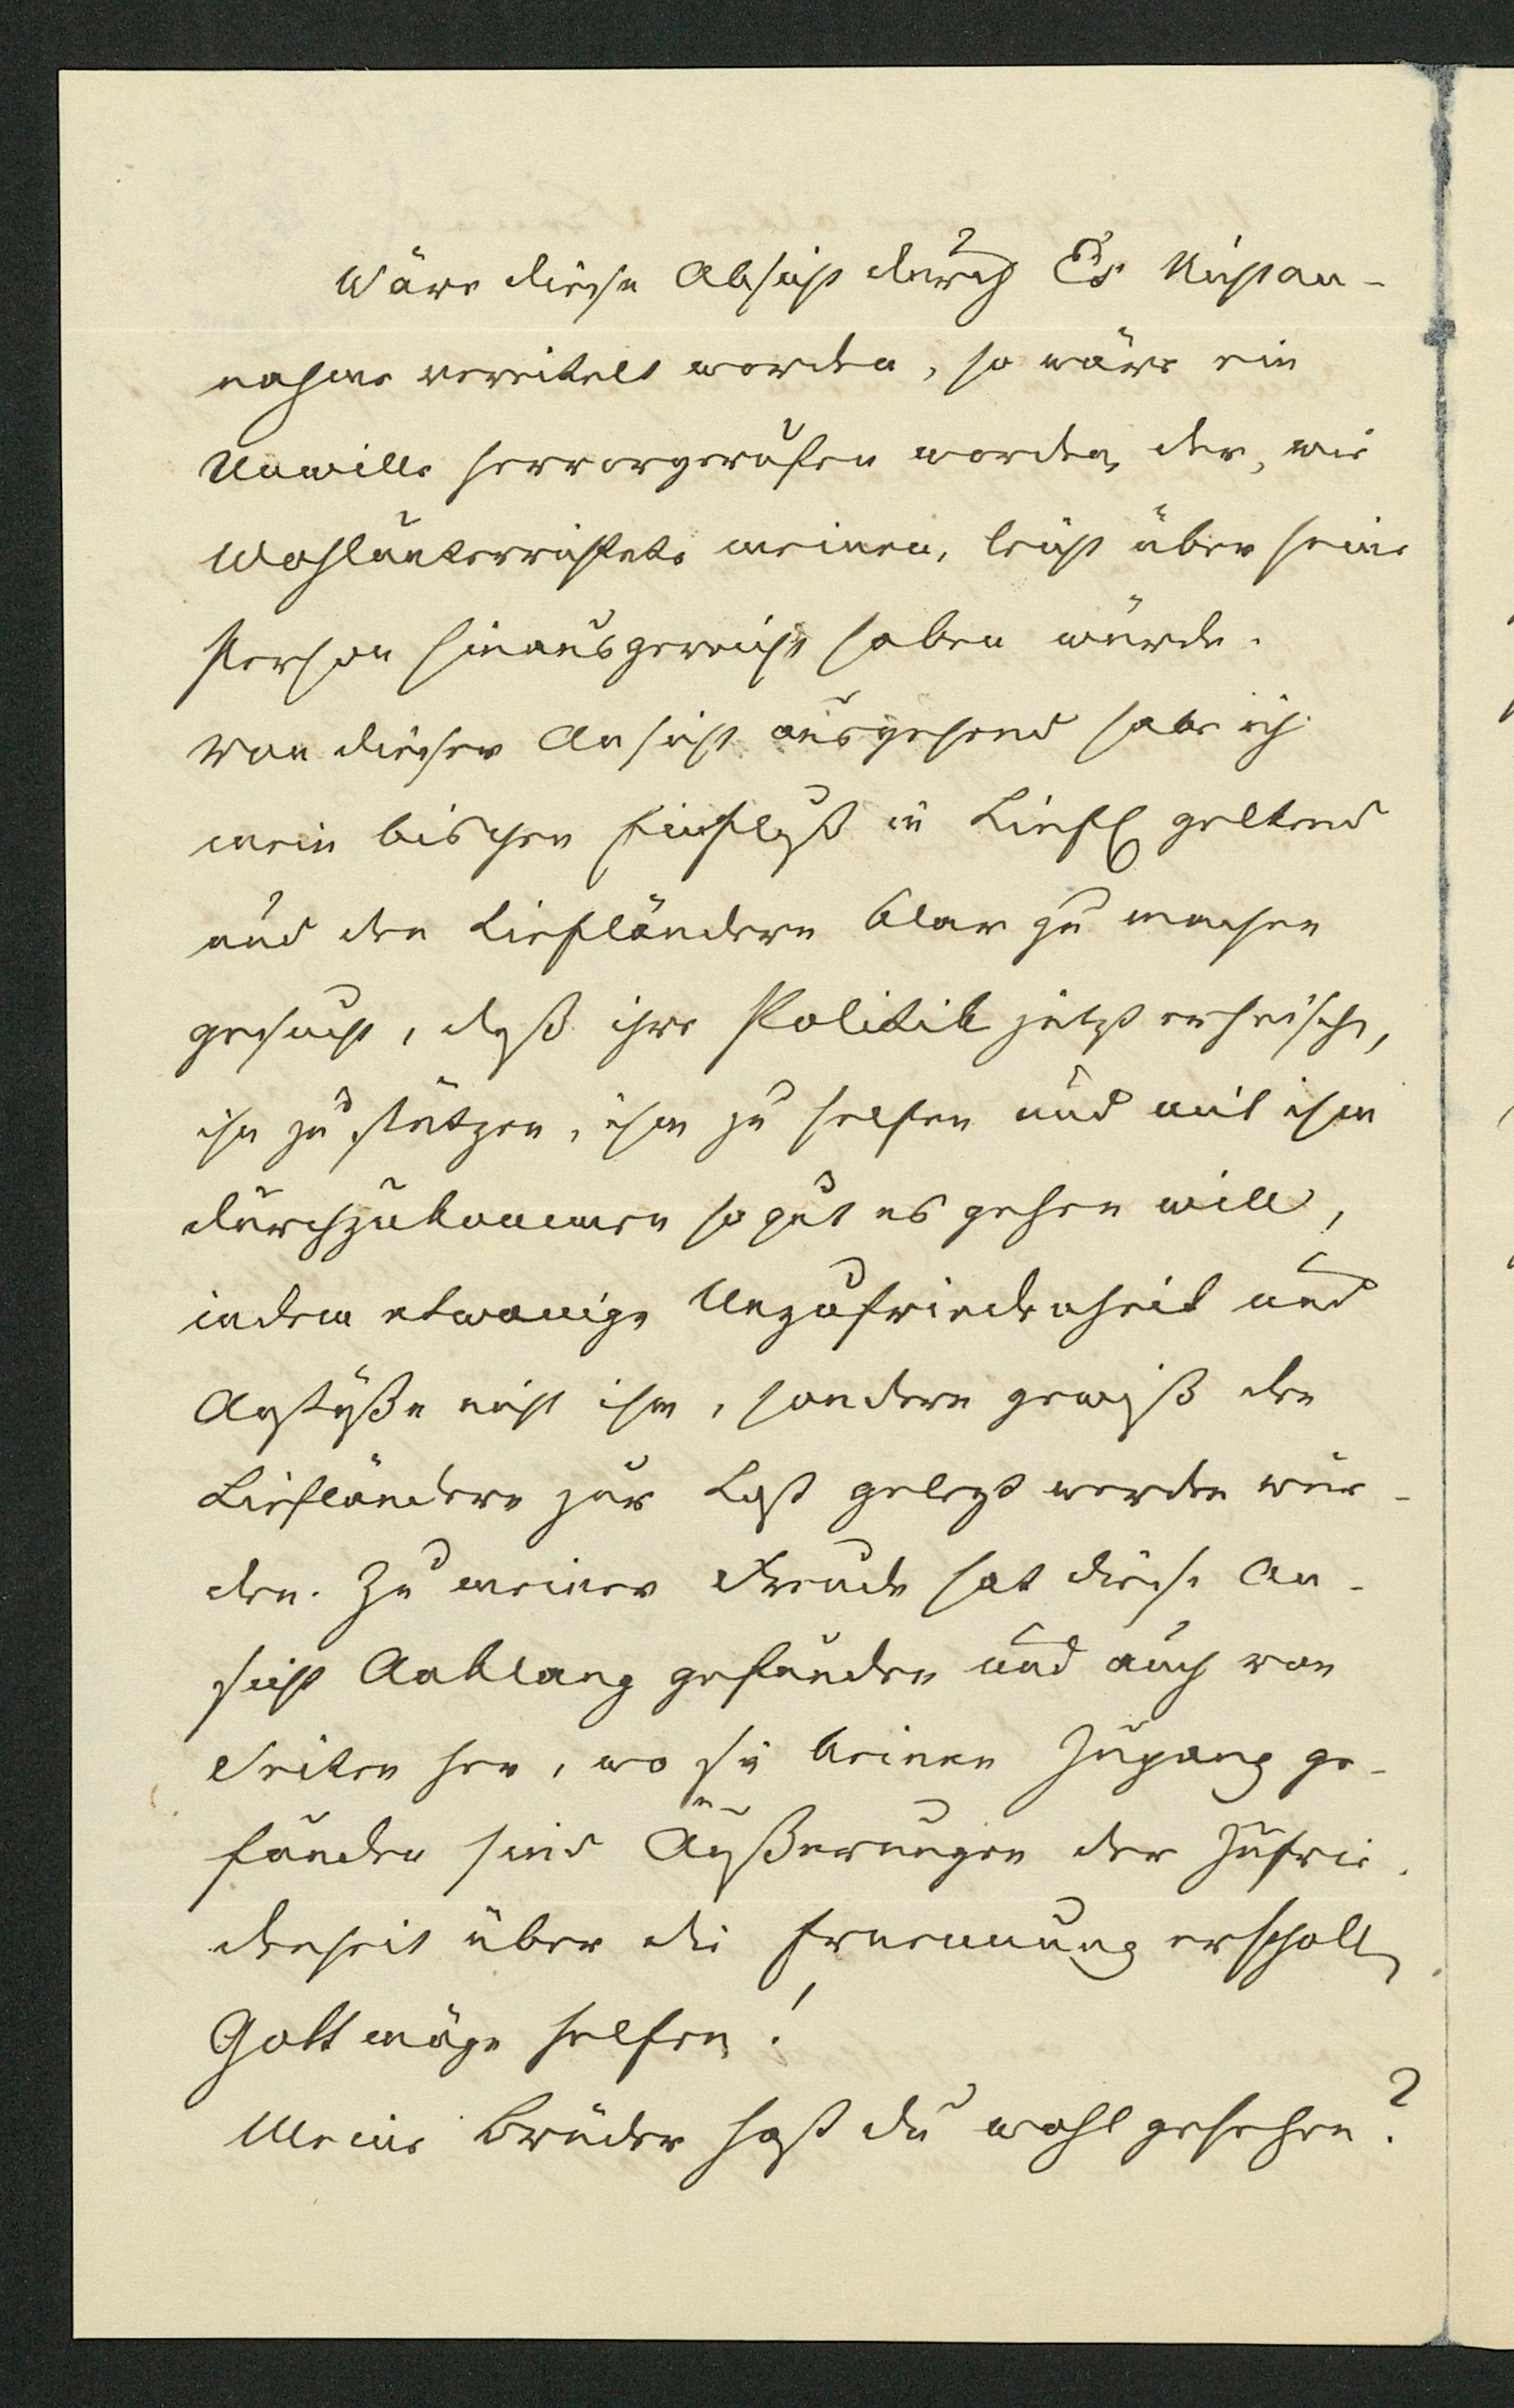 Wäre diese Absicht durch Es Nichtan-
nahme vereitelt worden, so wäre ein
Unwille hervorgerufen worden, der, wie
Wohlunterrichtete meinen, leicht über seine
Person hinausgereicht haben würde.
Von dieser Ansicht ausgehend habe ich
mein bischen Einfluß in Liefl geltend
und den Liefländern klar zu machen
gesucht, daß ihre Politik jetzt erheischt,
ihn zu stützen, ihm zu helfen und mit ihm
durchzukommen so gut es gehen will,
indem etwanige Unzufriedenheit und
Anstöße nicht ihm, sondern gewiß den
Liefländern zur Last gelegt werden wür-
den. Zu meiner Freude hat diese An-
sicht Anklang gefunden und auch von
Seiten her, wo sie keinen Zugang ge-
funden sind Äußerungen der Zufrie-
denheit über die Ernennung erschollen
Gott möge helfen!
Meine Brüder hast du wohl gesehen?